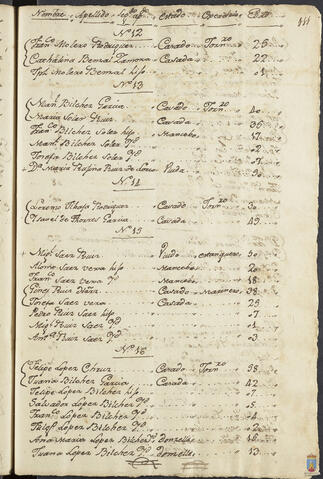 Nombre Apellido Seg.do ap.do Estado Operario Edad
111
N.º 12
Fran.co Molero Rodriguez Casado Jorn.ro 25
Cathalina Bernal Zamora Casada 22
Jph. Molero Bernal hijo 1
N.º 13
Man.l Bilchez Garcia Casado Jorn.ro 40
Maria Soler Ruiz Casada 36
Fran.co Bilchez Soler hijo Mancebo 17
Man.l Bilchez Soler Yd.
Josefa Bilchez Soler Yd. 7
D.ª Maria Rufina Ruiz de Viuda
N.º 14
Lorenzo Rodriguez Casado Jorn.ro 50
Ysavel de Thorres Garcia Casada 49
N.º 15
Mig.l Saez Ruiz Viudo estanquero 50
Alonso Saez Vera hijo Mancebo 20
Fran.co Saez Vera Yd. Mancebo 18
Gines Ruiz Casado Marinero 38
Josefa Saez Vera Casada 25
Pedro Ruiz Saez hijo 7
Mig.l Ruiz Saez Yd. 1
Ant.a Ruiz Saez Yd. 3
N.º 16
Felipe Lopez Casado Jorn.ro 38
Juana Bilchez Garcia Casada 42
Felipe Lopez Bilchez hijo 7
Salvador Lopez Bilchez Yd. 5
Fran.co Lopez Bilchez Yd. 4
Lopez Bilchez Yd. 2
Ana Maria Lopez Bilchez Yd. Donzella 16
Juana Lopez Bilchez Yd. Donzella 13